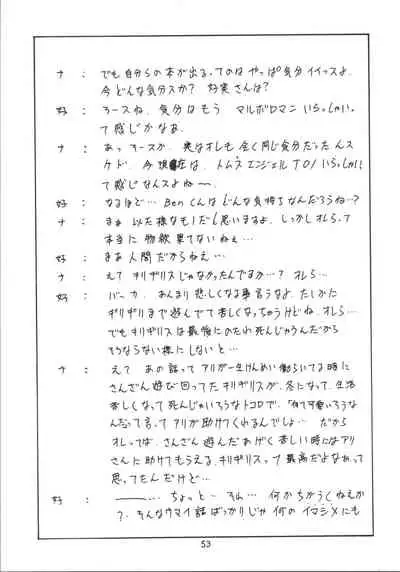 ナ : でも自分らの本が出るってのはやっぱ気分イイッスよ、
今どんな気分スか? 好実さんは?
好 : そースね、気分はもう マルボロマニ いらっしゃい
って感じかなあ。
ナ : あっ そースか、実はオレも全く同じ気分だったんス
ケド、今現在は、トムネエンジェル TO! いらっしゃい
って感じなんスよねー
好 : なるほど… Benくんはどんな気持ちなんだろうね…?
ナ : まぁ 似た様なもンだと思いますよ、しっかしオレらって
本当に物欲果てないねぇ…
好 : まあ人間だからねぇ…
ナ : えって キリギリスじゃなかったんですか…? オレら…
好 : バーカ、あんまり悲しくなる事言うなよ、たしかに
ギリギリまで遊んでて苦しくなっちゃうけどね、オレら…
でもキリギリスは最後にのたれ死んじゃうんだから
そうならない様にしないと…
ナ : えって あの話ってアリが一生けんめい働らいてる時に
さんざん遊び回ってたキリギリスが、冬になって、生活
苦しくなって死んじゃいそうなトコロで、「何て可愛いそうな
んだって言ってアリが助けてくれるんでしょ… だから
オレっては、さんざん遊んだあげく苦しい時にはアリ
さんに助けてもらえる、キリギリスって最高だよなあって
思ってたんだけど…
好 : ———… ちょっと〜 それ… 何かちがうくねえか
?、そんなウマイ話ばっかりじゃ 何のイマシメにも
53